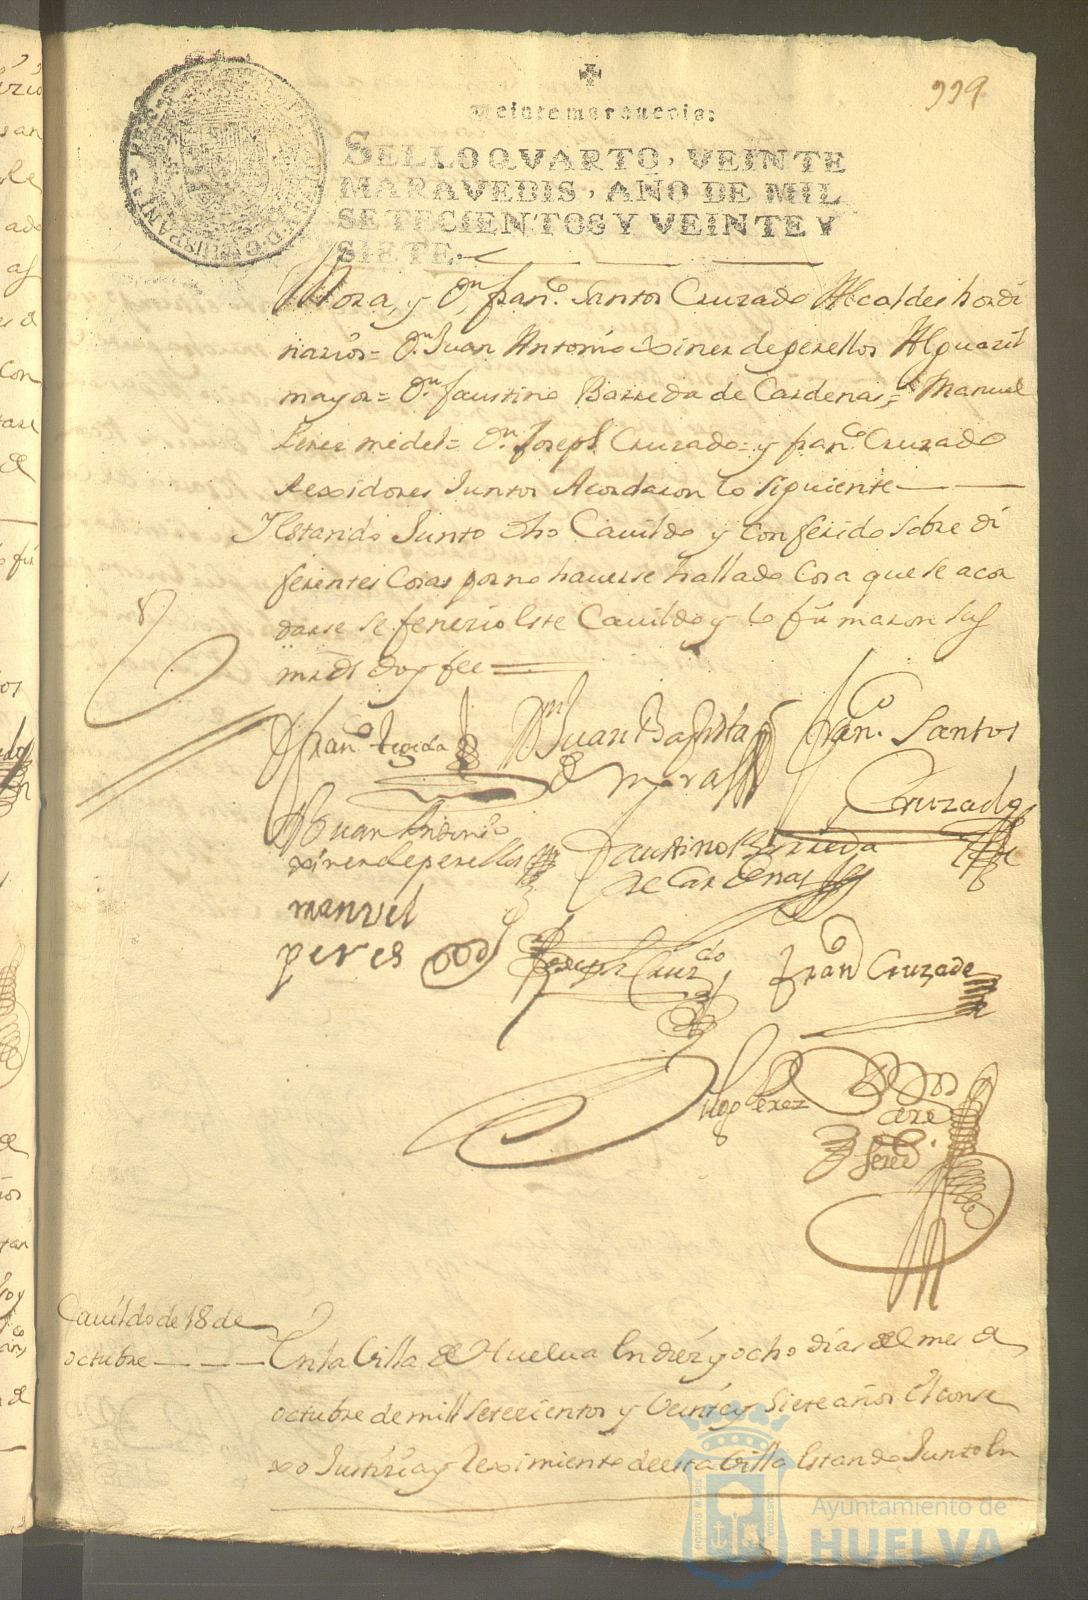 999
Veinte maravedis:
SELLO QVARTO, VEINTE
MARAVEDIS, AÑO DE MIL
SETECIENTOS Y VEINTE Y
SIETE.
Mora, y Dn. franco. Santos Cruzado Alcaldes hordi
narios = Dn. Juan Antonio xinez de perellos Alguazil
mayor = Dn. faustino Barreda de Cardenas = Manuel
Perez medel = Dn. Joseph Cruzado = y franco. Cruzado
Rexidores Juntos Acordaron lo siguiente
Y Estando Junto dho Cavildo y conferido sobre di
ferentes Cosas por no haverse hallado Cosa que se acor
darse se fenezio Este Cavildo y lo firmaron sus
mrds doy fee
franco. tegeda Dn Juan Baptista franco. Santos
de mora Cruzado
Dn Juan Antonio
xinez de perellos faustino Barreda
de Cardenas
manvel
peres Joseph Cruzdo franco Cruzado
Perez
Cavildo de 18 de
octubre
En la Villa de Huelva En diez y ocho dias del mes de
octubre de mill setezientos y veinte y siete años El conse
xo Justizia y Reximiento de esta Villa Estando Junto En
Ayuntamiento de
HUELVA